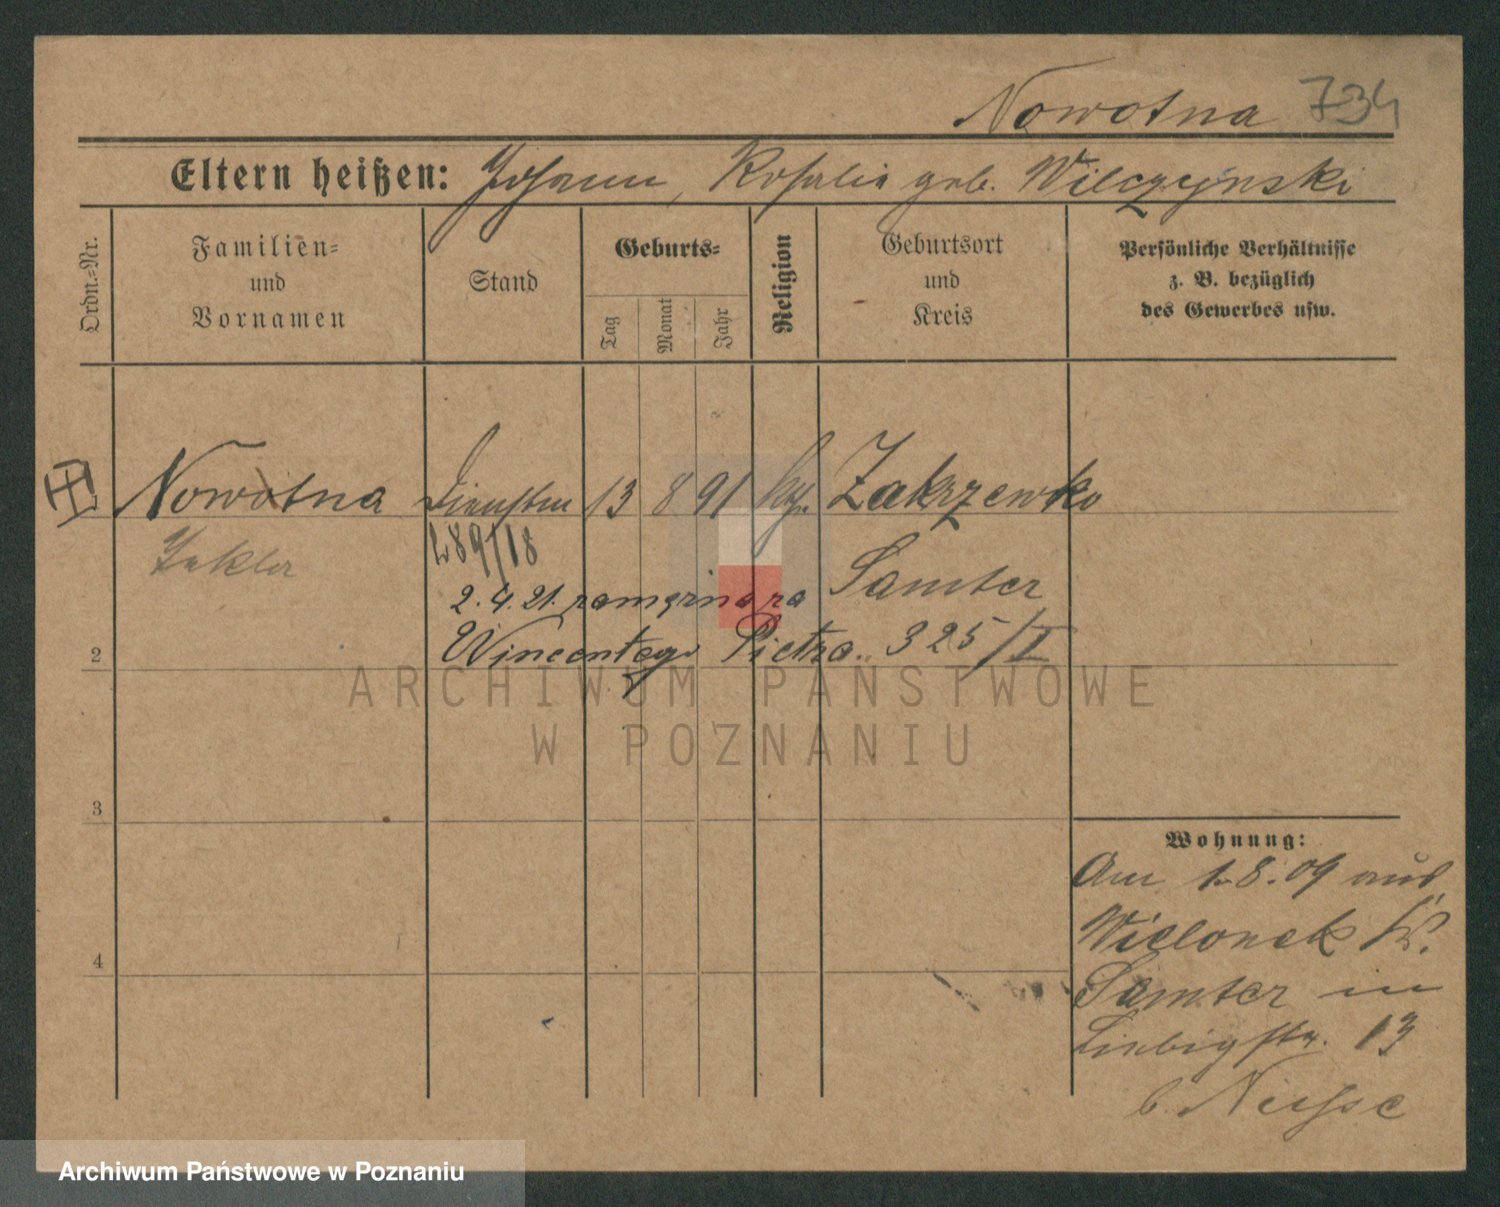 Nowotna 734
Eltern heißen: Johann, Rosalia geb. Wilczynski
Ordn.=Nr.
Familien= und Vornamen
Stand
Geburts=
Tag
Monat
Jahr
Religion
Geburtsort und Kreis
Persönliche Verhältnisse
z. B. bezüglich
des Gewerbes usw.
Nowotna 13 8 91 Zakrzewko
Samter
289/18
2.4.21. zamężna za
Wincentego Pietra. 325/I
2
3
4
Wohnung:
Am 1.8.09 aus
Wielonek Kr.
Samter in
Liebigstr. 13
b.
ARCHIWUM PAŃSTWOWE
W POZNANIU
Archiwum Państwowe w Poznaniu